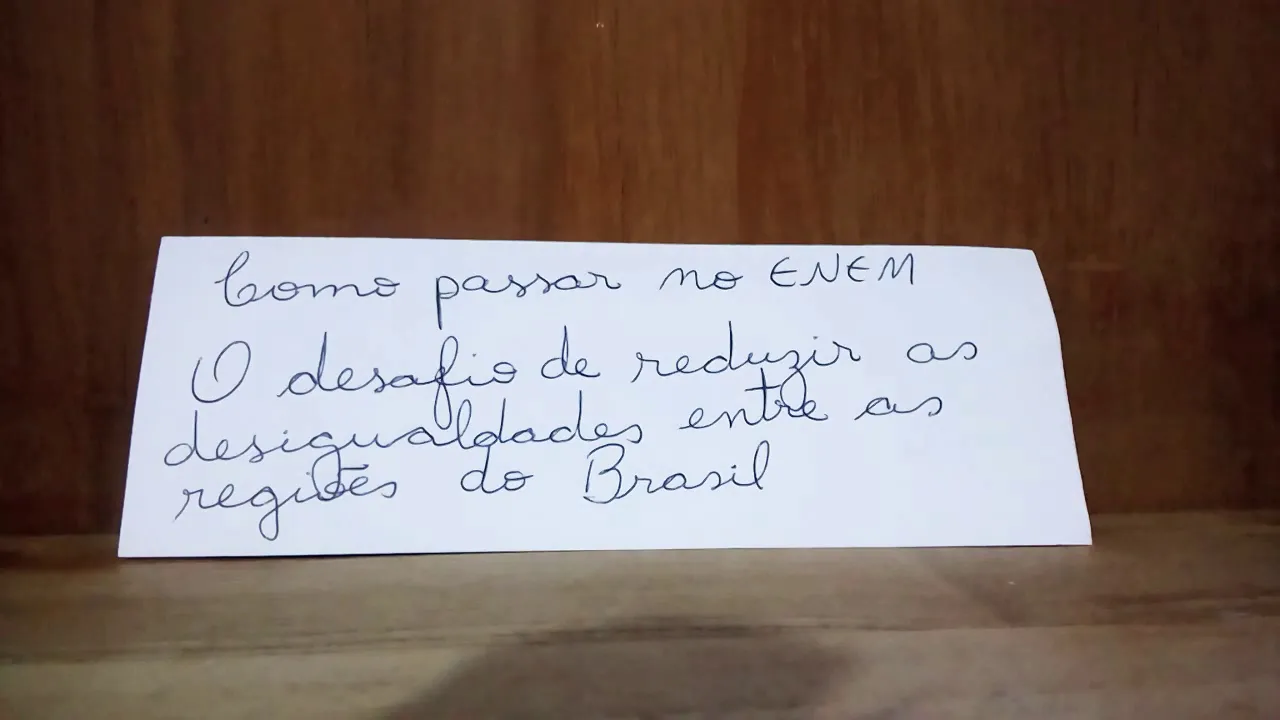 Como passar no ENEM
O desafio de reduzir as
desigualdades entre as
regiões do Brasil